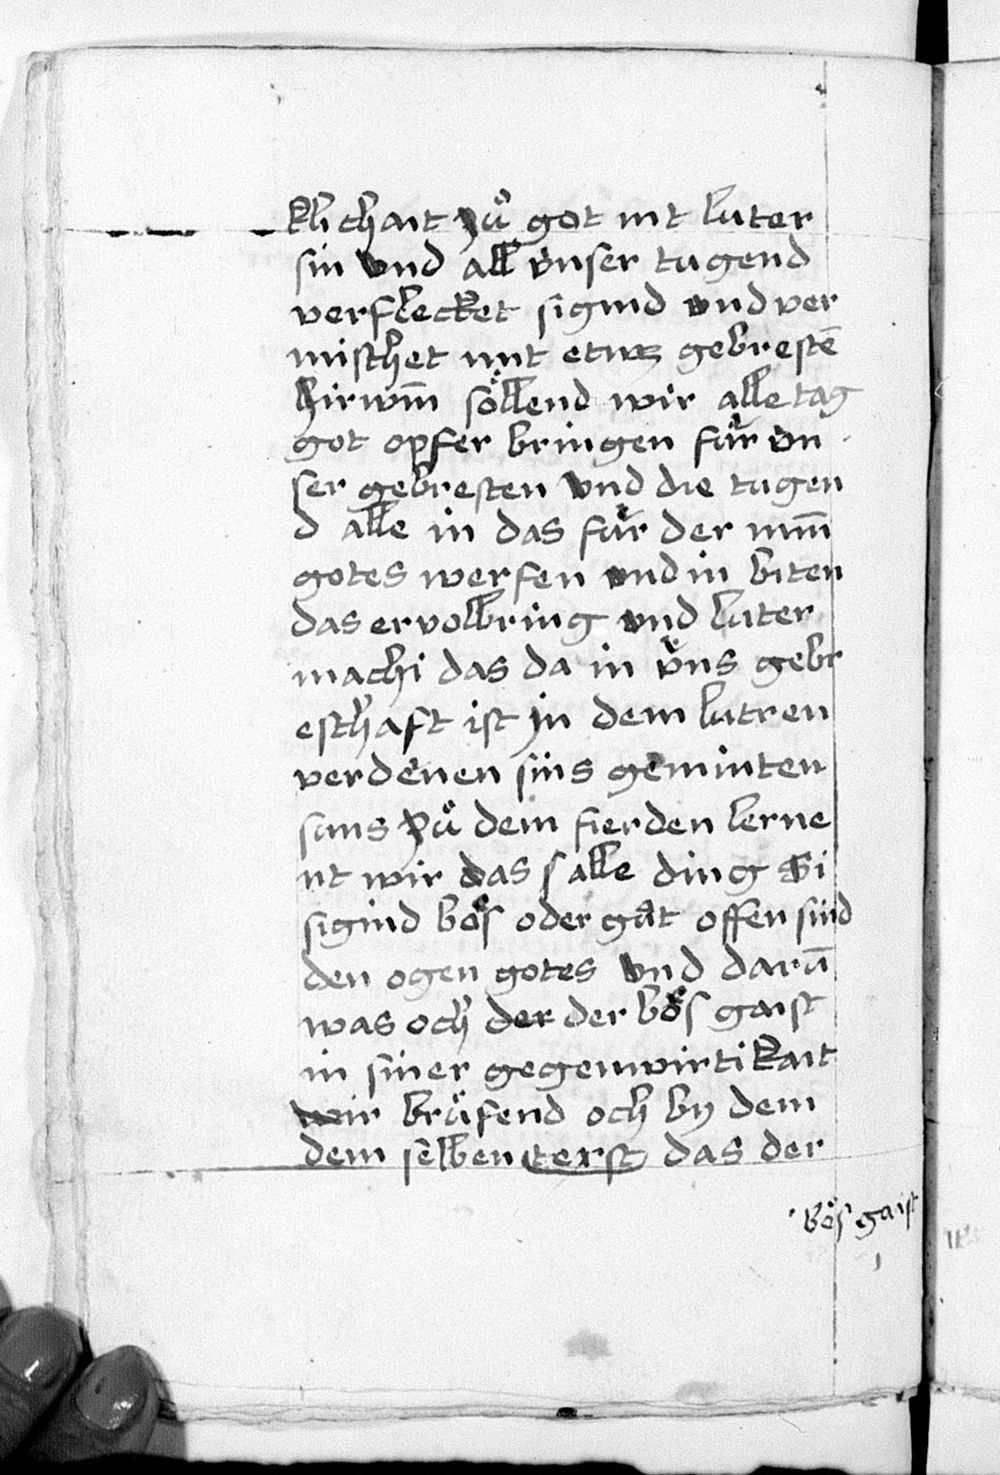 klichait zů got nit luter
sin vnd all vnser tugend
verflecket sigind vnd ver
mischet mit etwz gebrestē
hirvm̄ söllend wir alle tag
got opfer bringen für vn
ser gebresten vnd die tugen
d alle in das für der minn
gotes werfen vnd in biten
das er volbring vnd luter
machi das da in vns gebr
esthaft ist in dem lutren
verdenen sins geminten
suns zů dem fierden lerne
nt wir das s alle ding si
sigind bös oder gůt offen sind
den ogen gotes vnd darū
was och der der bös gaist
in siner gegenwirtikait
wir brüfend och by dem
dem selben terst das der
bös gaist